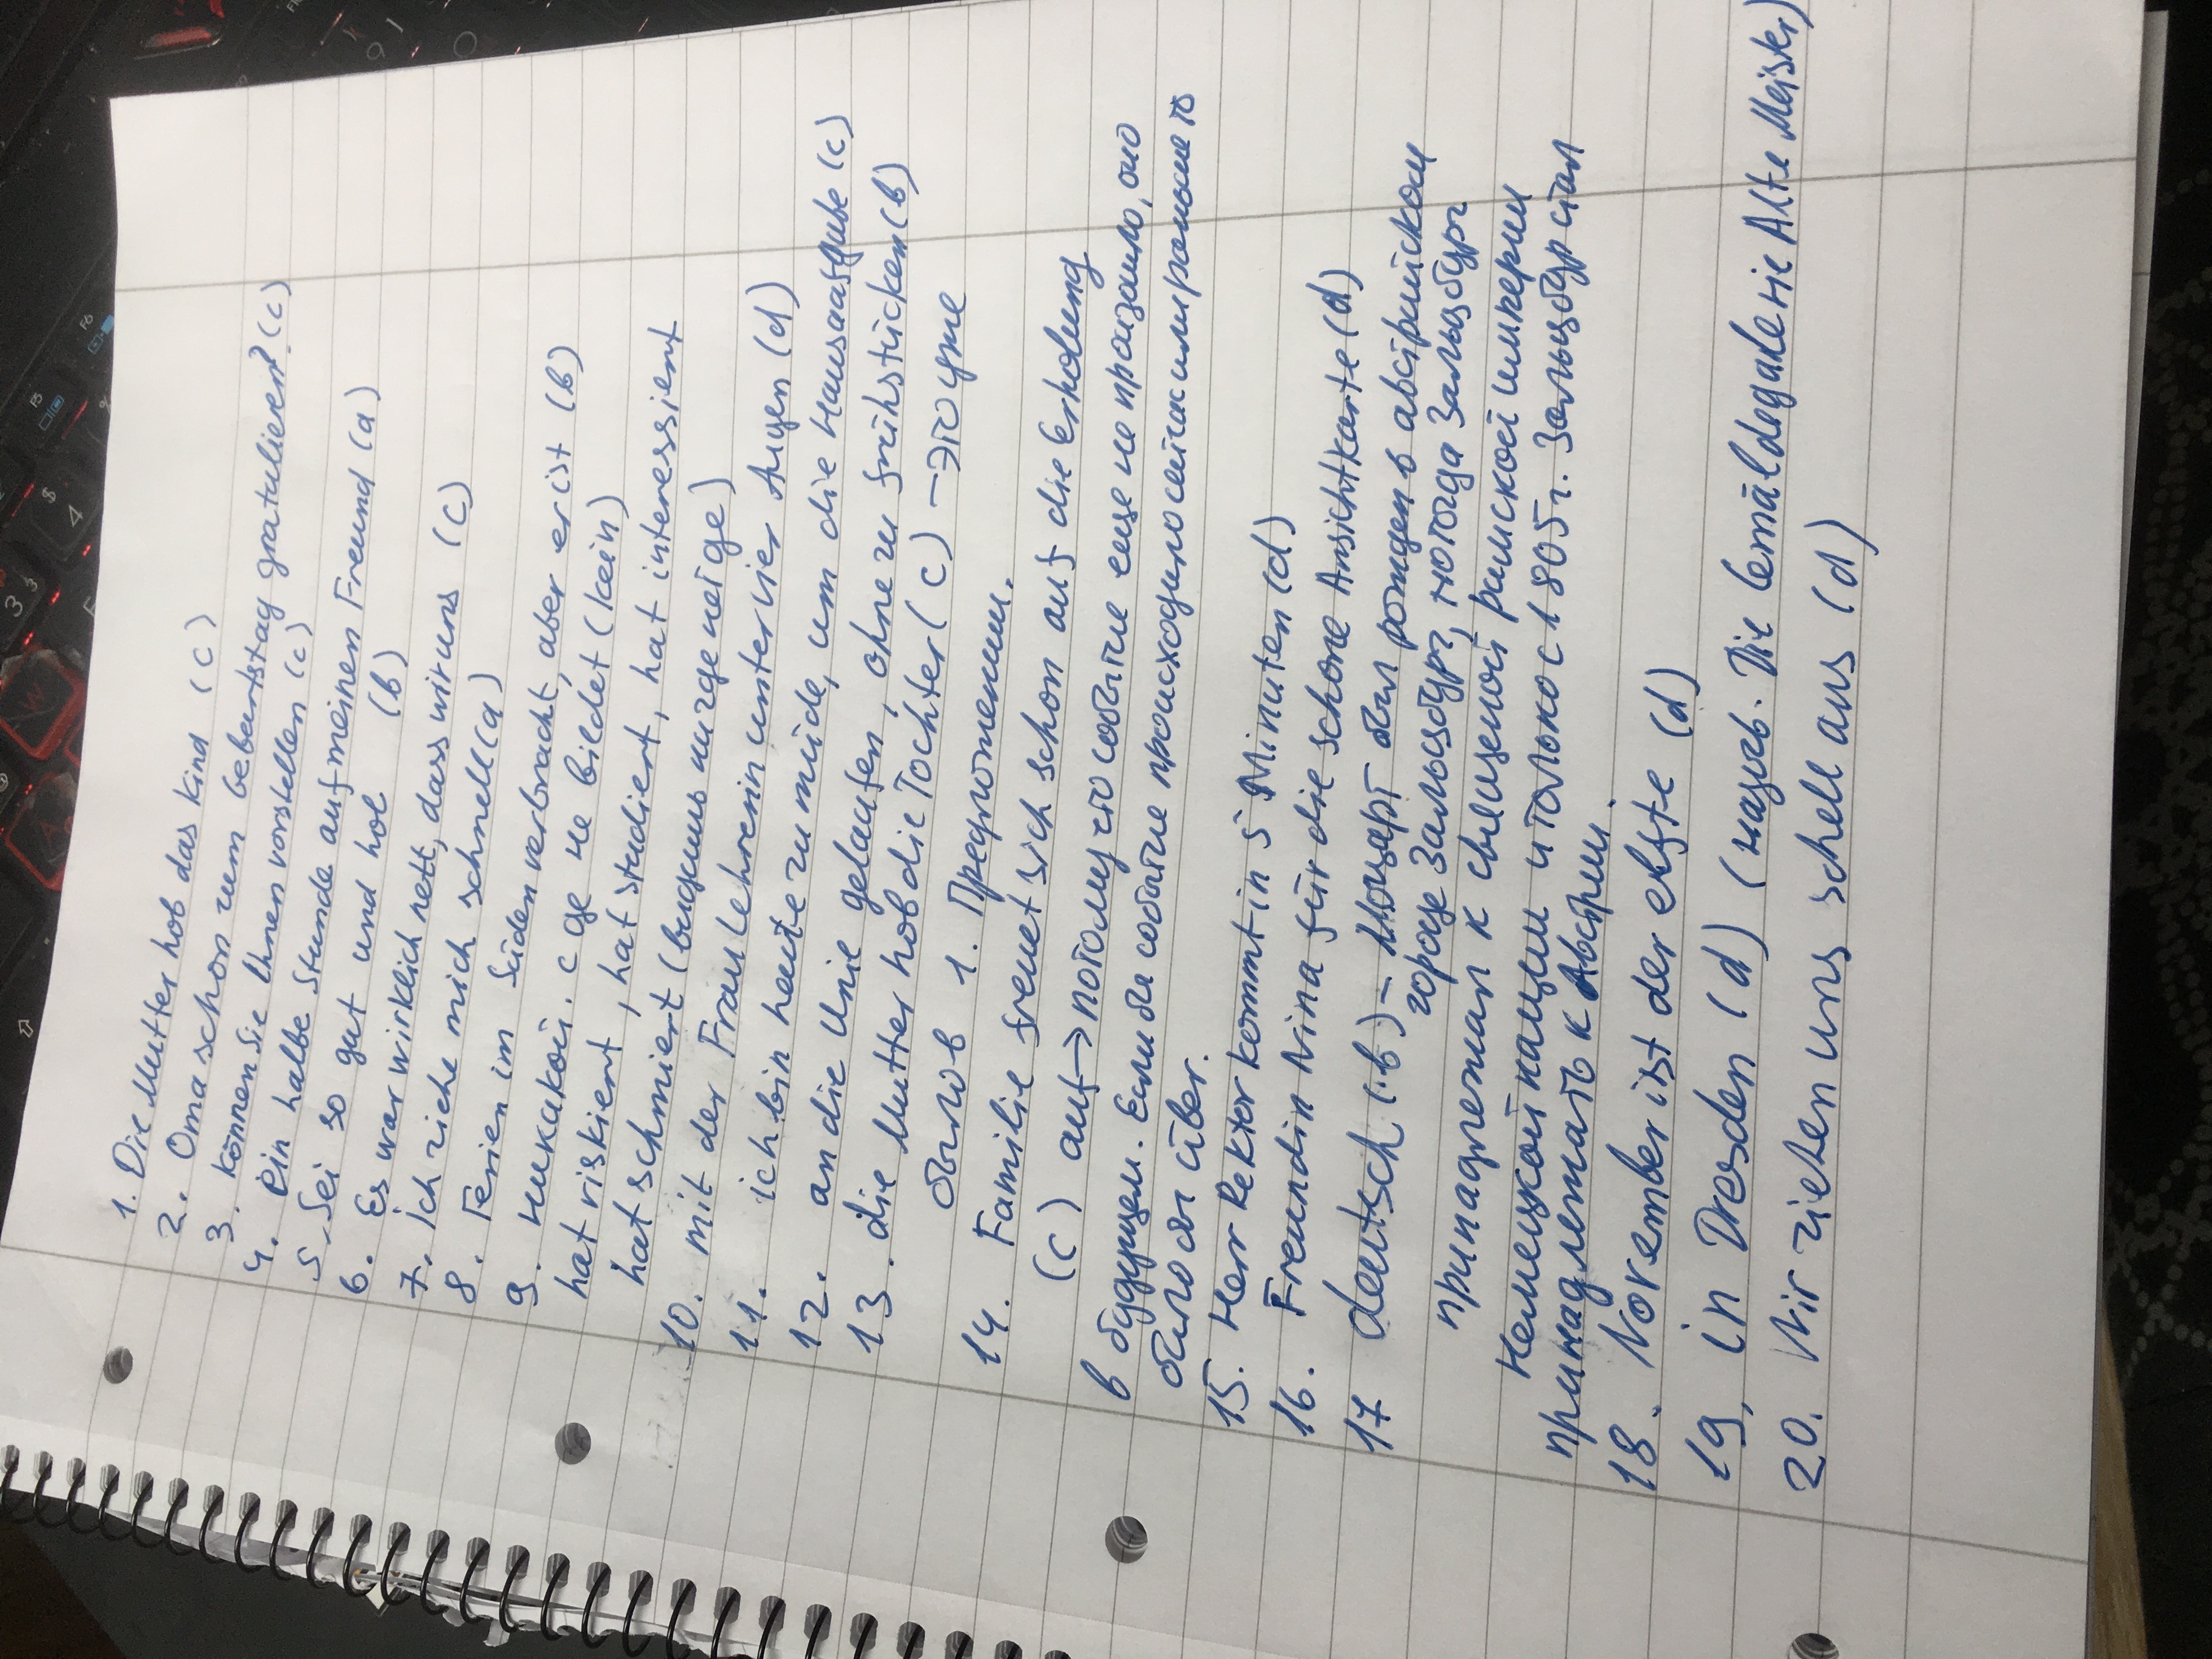 1. Die Mutter hob das Kind (c)
2. Oma schon zum Geburtstag gratuliert? (c)
3. können Sie Ihnen vorstellen (c)
4. Ein halbe Stunde auf meinen Freund (a)
5. Sei so gut und hol (b)
6. Es war wirklich nett, dass wir uns (c)
7. Ich ziehe mich schnell (a)
8. Ferien im Süden verbracht, aber er ist (b)
9. никакой. с ge не bildet (kein)
hat riskiert, hat studiert, hat interessiert
hat schmiert (видишь низде нетge)
10. mit der Frau Lehrerin unter vier Augen (d)
11. ich bin heute zu müde, um die Hausaufgabe (c)
12. an die Unie gelaufen, ohne zu frühstücken (b)
13. die Mutter hob die Tochter (c) → это уже
было в 1. Предложении.
14. Familie freuet sich schon auf die Erholung
(c) auf → потому что событие еще не произошло, оно
в будущем. Если бы событие происходило сейчас или раньше то
было бы über.
15. Herr Rektor kommt in 5 Minuten (d)
16. Freundin Nina für die schone Ansichtkarte (d)
17 deutsch (b) - Моцарт был рожден в австрийском
городе Зальцбург, тогда Зальцбург
принадлежал к священой римской империи
Немецкой нации и только с 1805г. Зальцбург стал
принадлежать к Австрии.
18. November ist der elfte (d)
19. in Dresden (d) (назыв. Die Gemäldegalerie Alte Meister)
20. Wir ziehen uns schell aus (d)